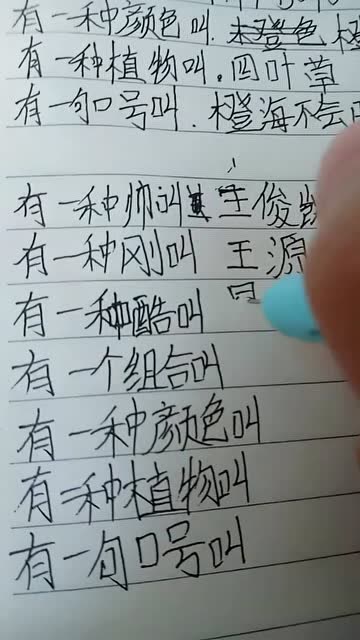 有一种颜色叫.橙
有一种植物叫.四叶草
有一句口号叫.橙海不会
有一种帅叫 王俊凯
有一种刚叫 王源
有一种酷叫
有一个组合叫
有一种颜色叫
有一种植物叫
有一句口号叫